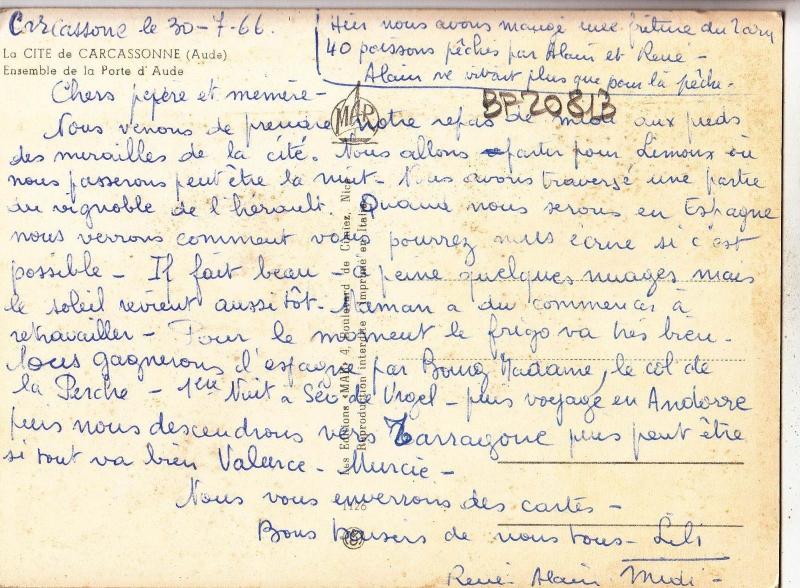 Carcassonne le 30-7-66.
La CITE de CARCASSONNE (Aude)
Ensemble de la Porte d'Aude
Hier nous avons mangé une friture du Tarn
40 poissons pêchés par Alain et René -
Alain ne vivant plus que pour la pêche.
BP20813
Chers pepère et memère -
MAR
Nous venons de prendre notre repas de midi aux pieds
des murailles de la cité. Nous allons partir pour Limoux où
nous passerons peut être la nuit. Nous avons traversé une partie
du vignoble de l'hérault. Quand nous serons en Espagne
nous verrons comment vous pourrez nous écrire si c'est
possible - Il fait beau - à peine quelques nuages mais
le soleil revient aussitôt. Maman a du commencé à
retravailler - Pour le moment le frigo va très bien.
Nous gagnerons l'espagne par Bourg Madame, le col de
la Perche - 1ère Nuit à Séo de Urgel - puis voyage en Andorre
puis nous descendrons vers Tarragone puis peut être
si tout va bien Valence - Murcie -
Nous vous enverrons des cartes -
Bons baisers de nous tous - Lili
René Alain Mimi -
Les Editions «MAR» 4, Boulevard de Cimiez, Nice
Reproduction interdite Imprimé en Italie
1126